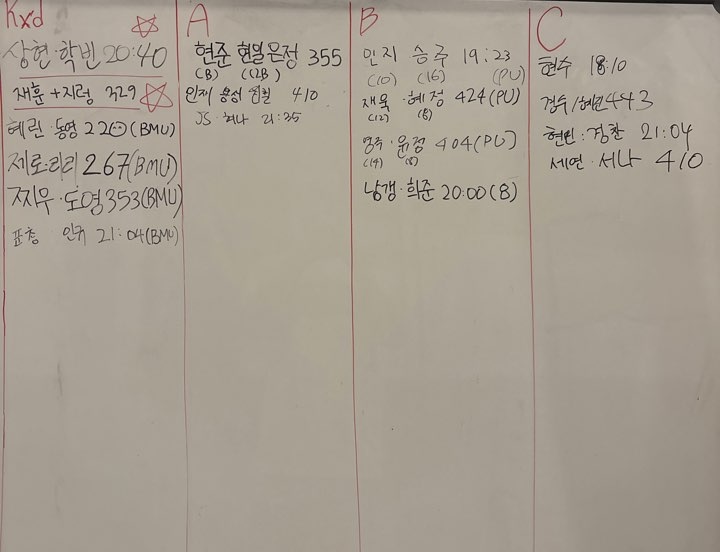 Rxd
상현·학빈 20:40
재훈+지렁 329
혜린·동영 22 (BMU)
제로·리리 267(BMU)
지우·도영 353(BMU)
표충 인규 21:04(BMU)
A
현준 현일 은정 355
(B) (12B)
인재 용성 410
JS· 허나 21:35
B
민지 승주 19:23
(10) (16) (PU)
재욱·혜정 424(PU)
(12) (8)
영주·윤정 404(PU)
(14) (8)
낭갱·희준 20:00(8)
C
현수 18:10
경수/혜진 443
현민·경찬 21:04
세연·서나 410